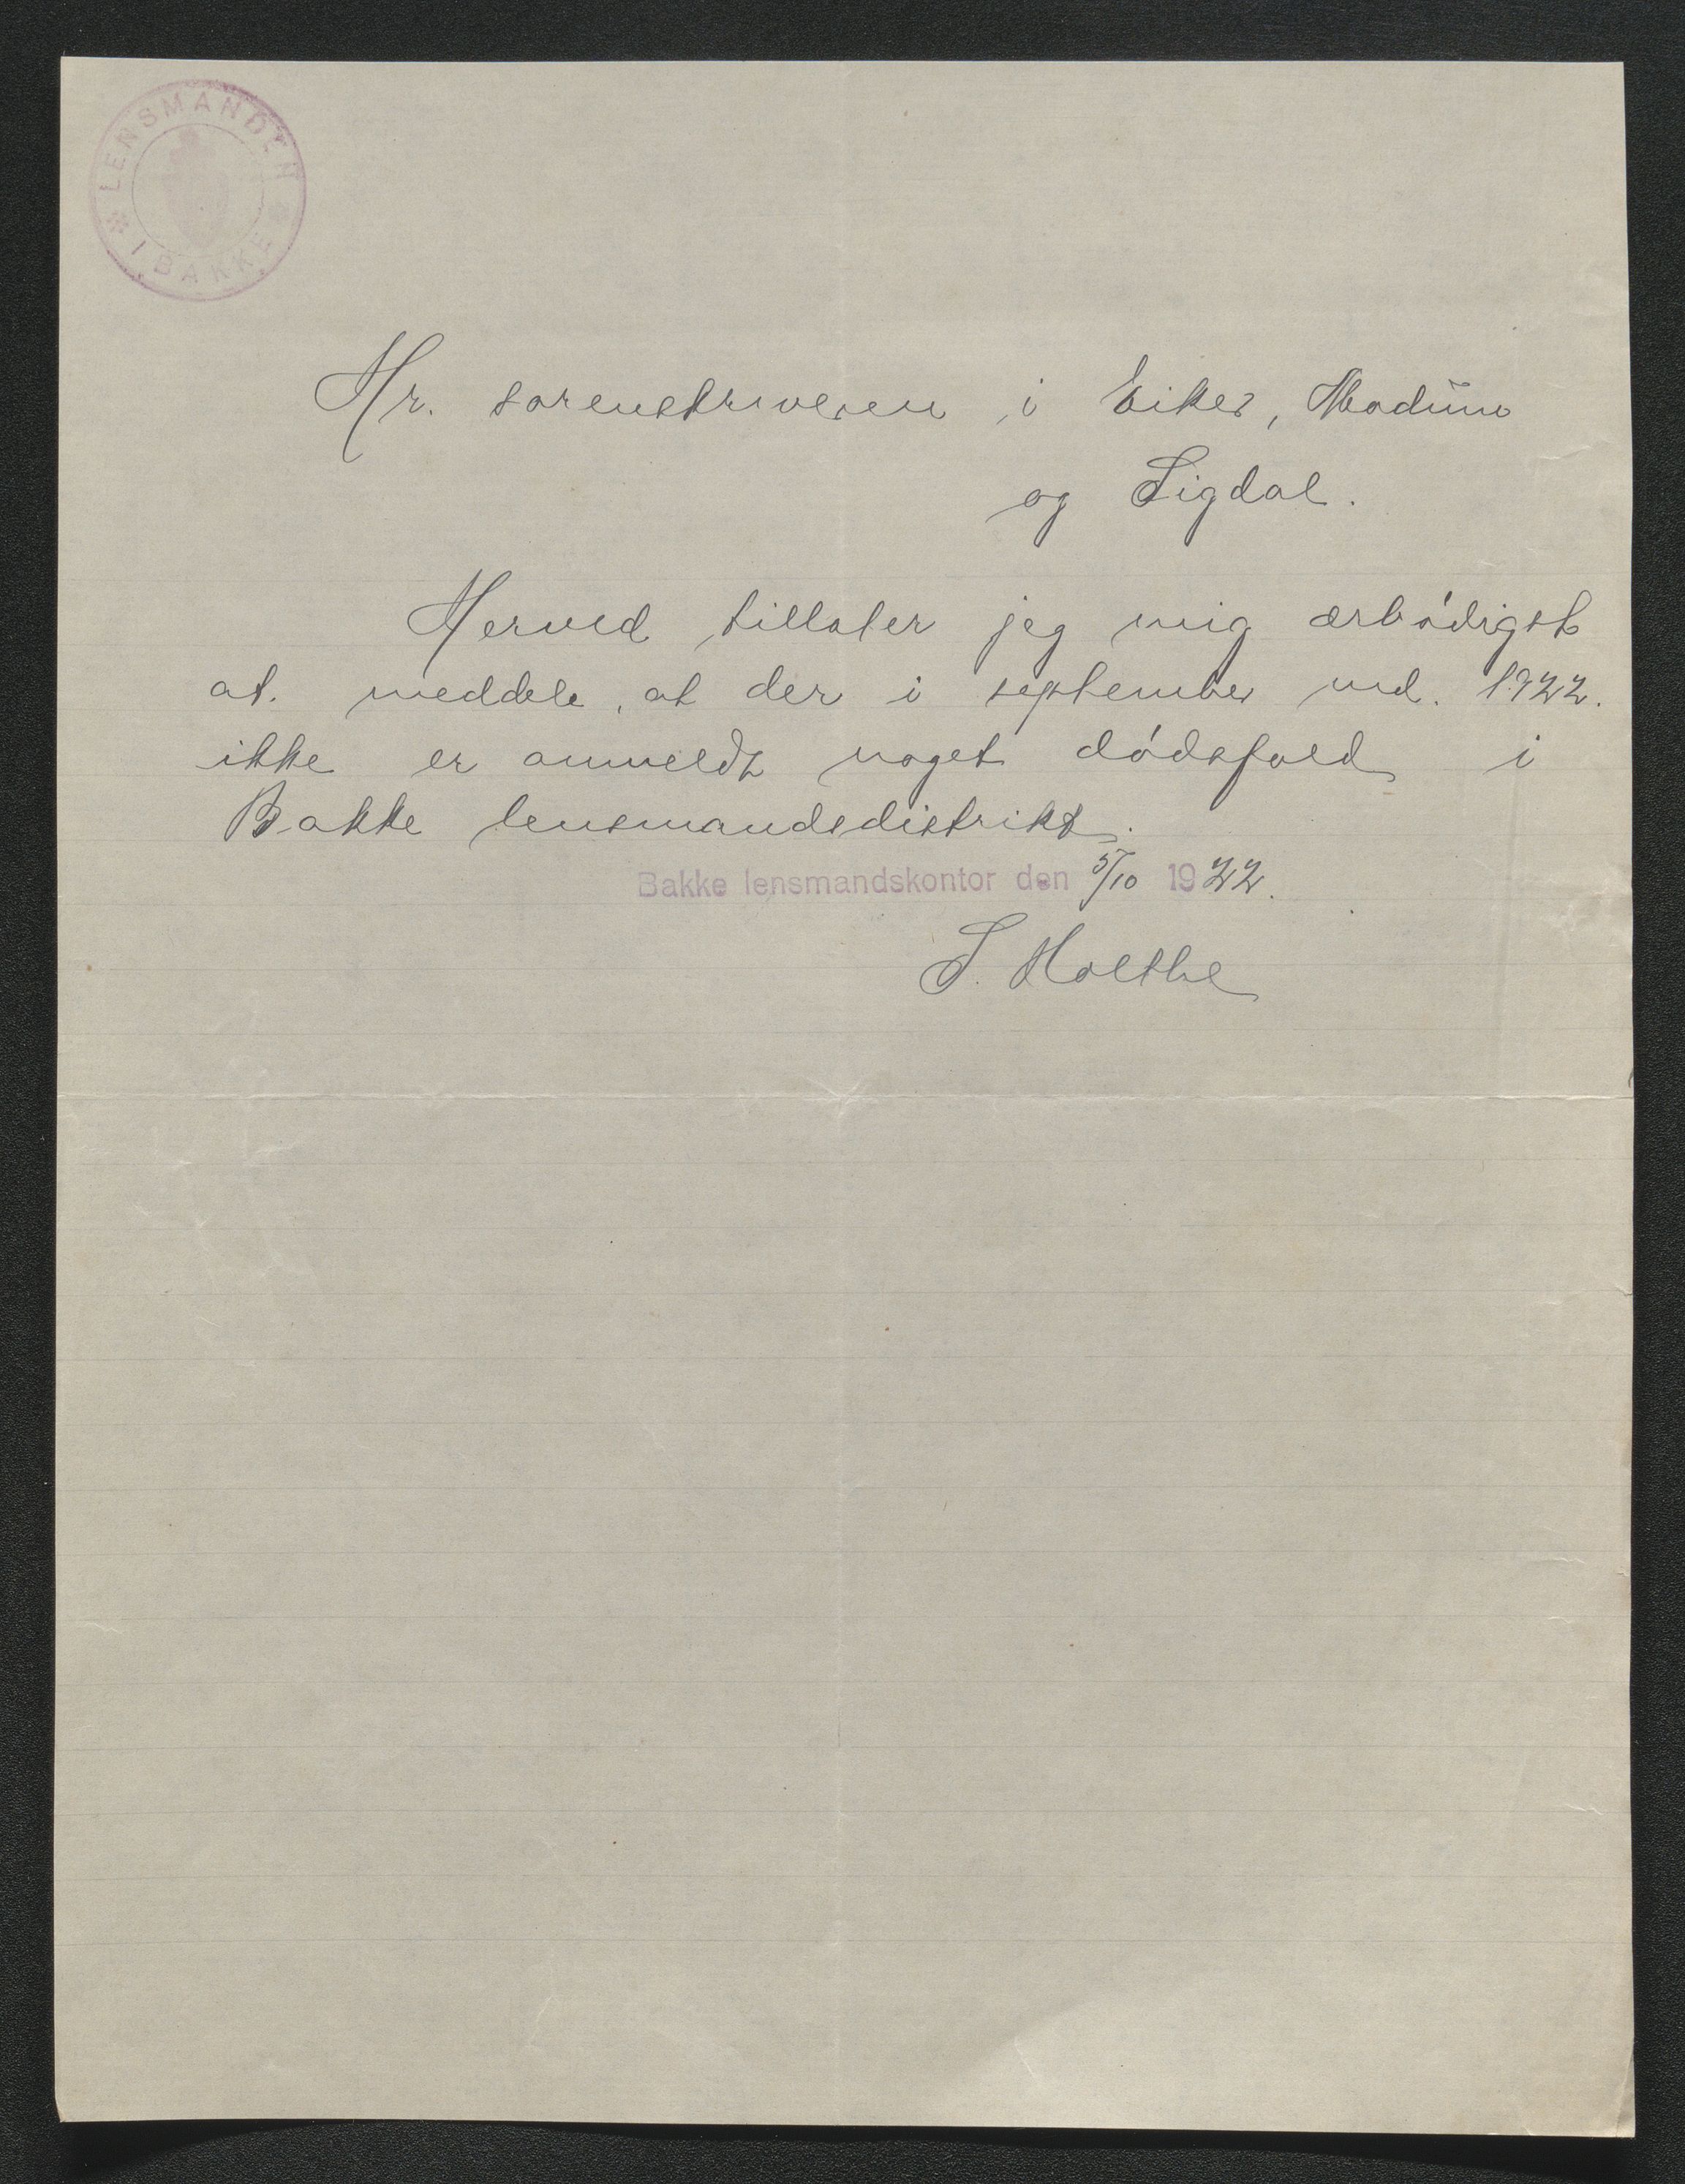 LENSMANDEN
I BAKKE
Hr. sorenskriveren i Eiker, Modum
og Sigdal.
Herved tillater jeg mig ærbødigst
at meddele, at der i september md. 1922.
ikke er anmeldt noget dødsfald i
Bakke lensmandsdistrikt.
Bakke lensmandskontor den 5/10 1922.
S. Holthe